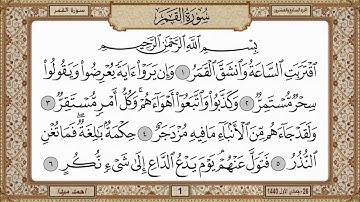 الجزء السابع والعشرون
سورة القمر
سُورَةُ القَمَرِ
بِسْمِ اللَّهِ الرَّحْمَٰنِ الرَّحِيمِ
اقْتَرَبَتِ السَّاعَةُ وَانشَقَّ الْقَمَرُ ١ وَإِن يَرَوْا آيَةً يُعْرِضُوا وَيَقُولُوا
سِحْرٌ مُّسْتَمِرٌّ ٢ وَكَذَّبُوا وَاتَّبَعُوا أَهْوَاءَهُمْ وَكُلُّ أَمْرٍ مُّسْتَقِرٌّ ٣
وَلَقَدْ جَاءَهُم مِّنَ الْأَنبَاءِ مَا فِيهِ مُزْدَجَرٌ ٤ حِكْمَةٌ بَالِغَةٌ فَمَا تُغْنِ
النُّذُرُ ٥ فَتَوَلَّ عَنْهُمْ يَوْمَ يَدْعُ الدَّاعِ إِلَىٰ شَيْءٍ نُّكُرٍ ٦
26- جمادى الأول 1440
1
أحمد